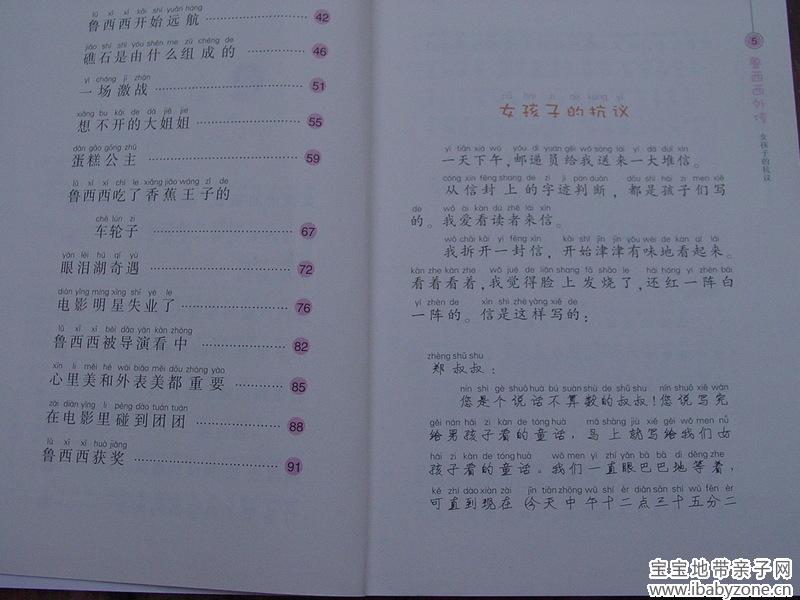 lǔ xī xī kāi shǐ yuǎn háng
鲁西西开始远航 42
jiāo shí shì yóu shén me zǔ chéng de
礁石是由什么组成的 46
yì chǎng jī zhàn
一场激战 51
xiǎng bu kāi de dà jiě jie
想不开的大姐姐 55
dàn gāo gōng zhǔ
蛋糕公主 59
lǔ xī xī chī le xiāng jiāo wáng zǐ de
鲁西西吃了香蕉王子的
chē lún zi
车轮子 67
yǎn lèi hú qí yù
眼泪湖奇遇 72
diàn yǐng míng xīng shī yè le
电影明星失业了 76
lǔ xī xī bèi dǎo yǎn kàn zhòng
鲁西西被导演看中 82
xīn li měi hé wài biǎo měi dōu zhòng yào
心里美和外表美都重要 85
zài diàn yǐng li pèng dào tuán tuan
在电影里碰到团团 88
lǔ xī xī huò jiǎng
鲁西西获奖 91
5
鲁西西传
女孩子的抗议
nǚ hái zi de kàng yì
女孩子的抗议
yì tiān xià wǔ yóu dì yuán gěi wǒ sòng lái yí dà duī xìn
一天下午，邮递员给我送来一大堆信。
cóng xìn fēng shang de zì jì pàn duàn dōu shì hái zi men xiě
从信封上的字迹判断，都是孩子们写
de wǒ ài kàn dú zhě lái xìn
的。我爱看读者来信。
wǒ chāi kāi yì fēng xìn kāi shǐ jīn jīn yǒu wèi de kàn qǐ lái
我拆开一封信，开始津津有味地看起来。
kàn zhe kàn zhe wǒ jué de liǎn shang fā shāo le hái hóng yí zhèn bái
看着看着，我觉得脸上发烧了，还红一阵白
yí zhèn de xìn shì zhè yàng xiě de
一阵的。信是这样写的：
zhèng shū shu
郑叔叔：
nín shì gè shuō huà bú suàn shù de shū shu nín shuō xiě wán
您是个说话不算数的叔叔！您说写完
gěi nán hái zi kàn de tóng huà mǎ shàng jiù xiě gěi wǒ men nǚ
给男孩子看的童话，马上就写给我们女
hái zi kàn de tóng huà wǒ men yì zhí yǎn bā bā de děng zhe
孩子看的童话。我们一直眼巴巴地等着，
kě zhí dào xiàn zài jīn tiān zhōng wǔ shí èr diǎn sān shí wǔ fēn èr
可直到现在（今天中午十二点三十五分二
宝宝地带亲子网
www.ibabyzone.cn